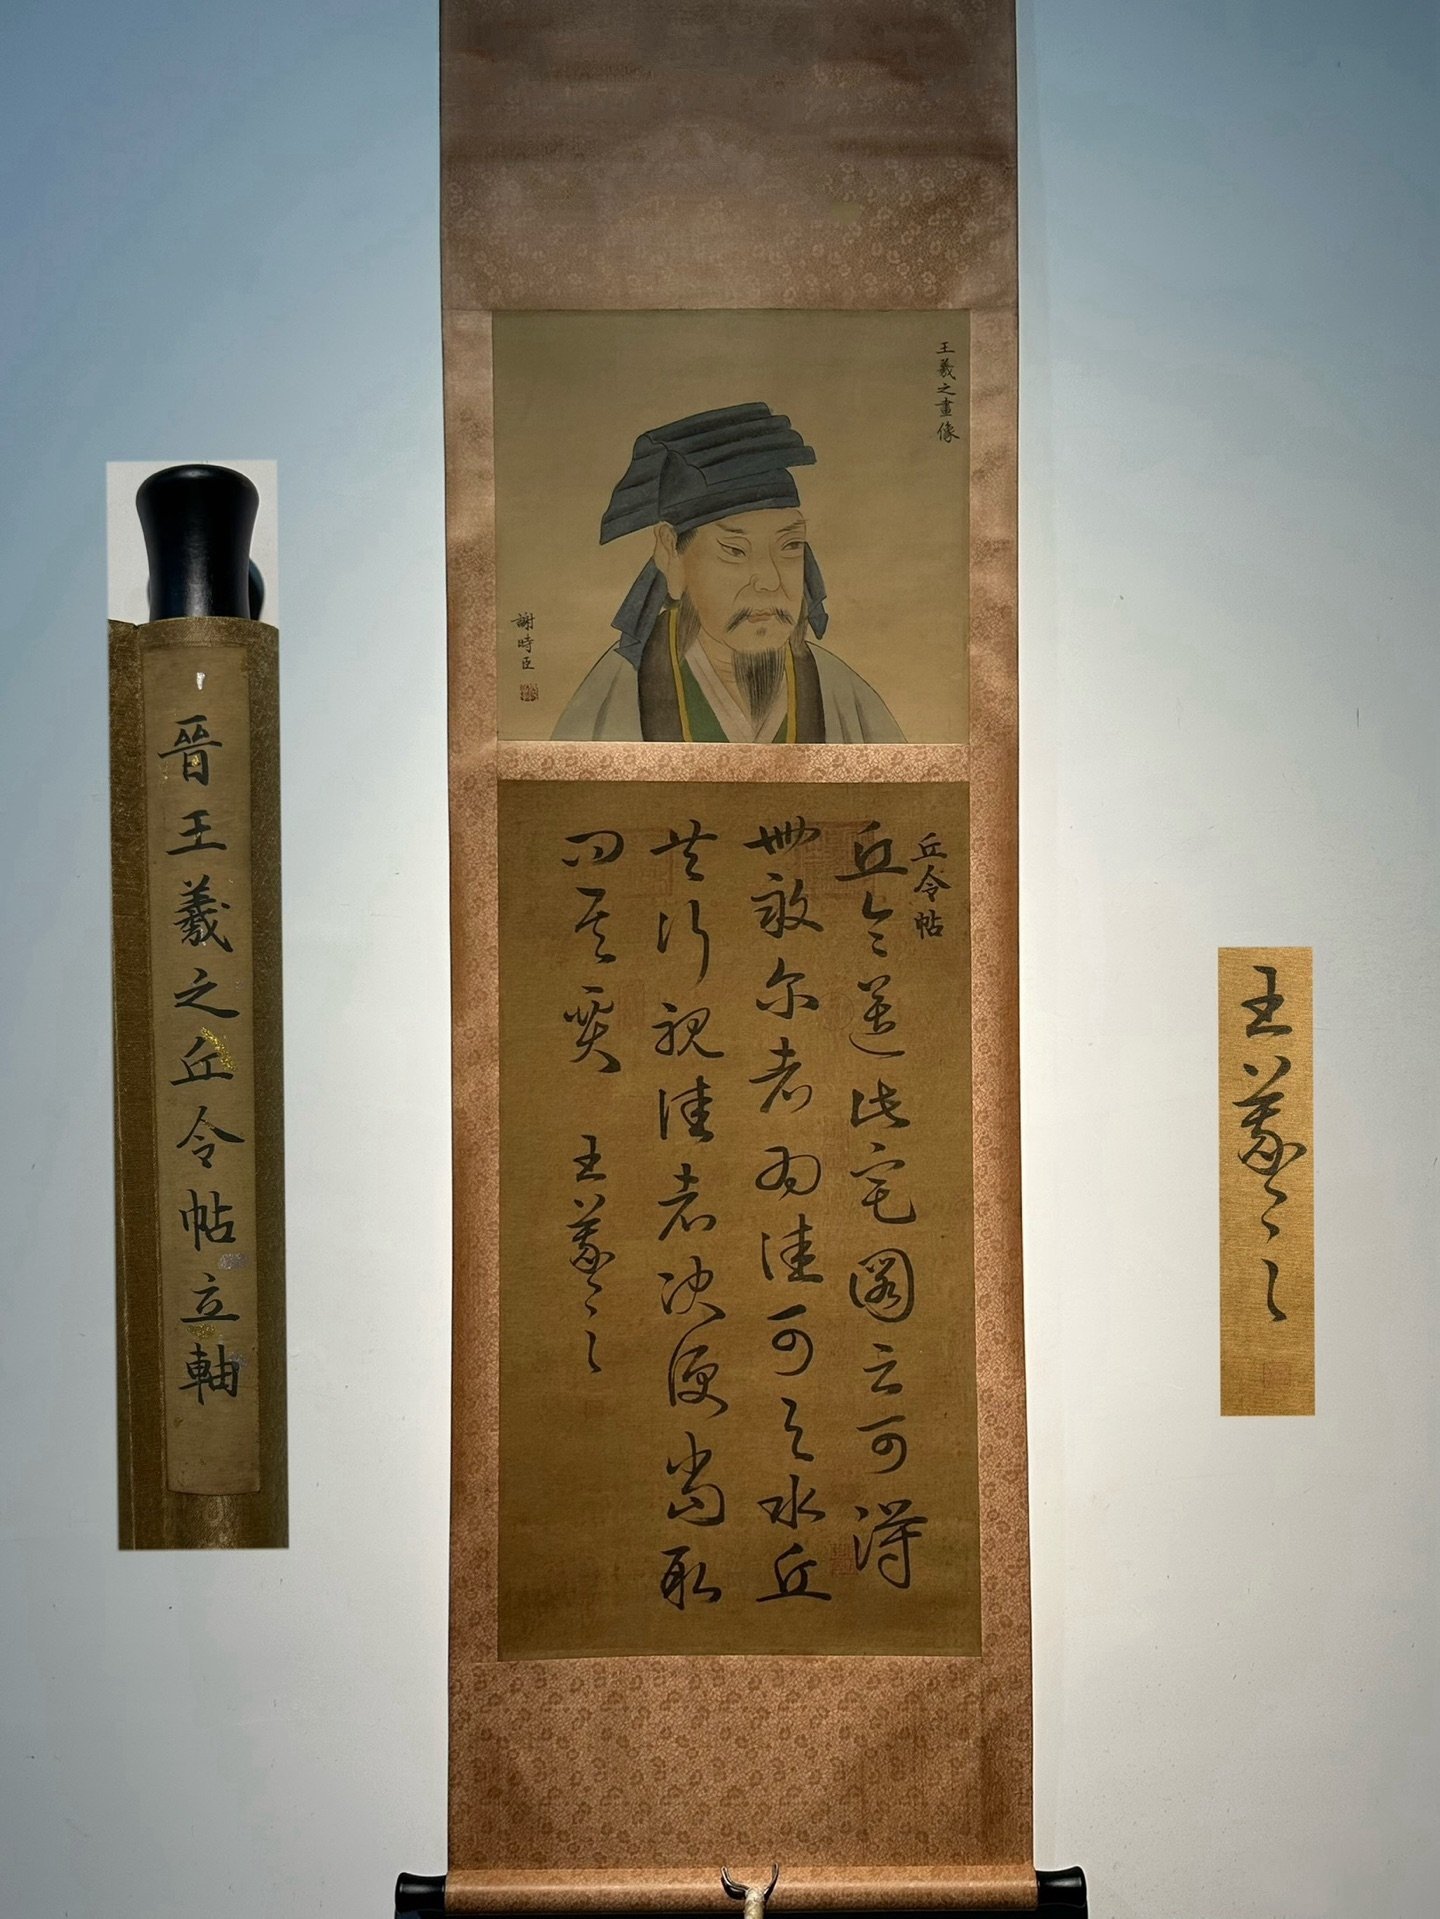 晉王羲之丘令帖立軸
王羲之畫像
謝時臣
丘令帖
丘令送此宅圖云可得
卌畝尔者為佳可與水丘
共行視佳者決便當取
問其賈 王羲之
王羲之